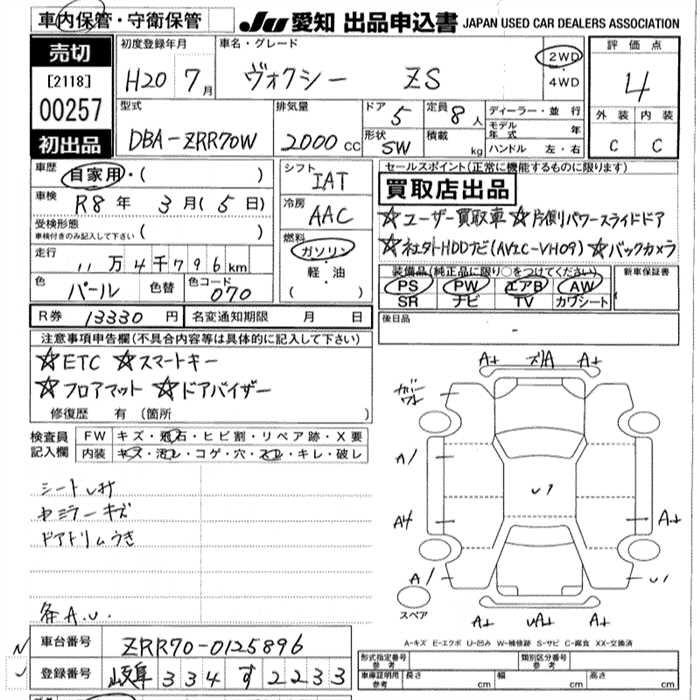 車内保管・守衛保管 JU 愛知 出品申込書 JAPAN USED CAR DEALERS ASSOCIATION
売切 初度登録年月 車名・グレード 2WD 評価点
[2118] H20 7月 ヴォクシー ZS 4WD 4
00257 型式 排気量 ドア 5 定員 8人 ディーラー・並行 外装 内装
初出品 DBA-ZRR70W 2000 CC 形状 SW 積載 kg モデル年式 年 C C
ハンドル 左・右
車歴 自家用・( ) シフト IAT セールスポイント(正常に機能するものに限ります)
車検 R8年 3月(5日) 冷房 AAC 買取店出品
受検形態 ( ) ☆ユーザー買取車 ☆片側パワースライドドア
車検付きのみ記入して下さい 燃料 ガソリン ☆社外HDDナビ(AVIC-VH09) ☆バックカメラ
走行 11万4千796km 軽・油 装備品(純正品に限り○をつけてください) 新車保証書
色 パール 色替 色コード 070 ( ) PS PW エアB AW
SR ナビ TV カワシート
R券 13330円 名変通知期限 月 日 後日品 -
注意事項申告欄(不具合内容等は具体的に記入して下さい)
☆ETC ☆スマートキー
☆フロアマット ☆ドアバイザー
修復歴 有 (箇所 )
検査員記入欄 FW キズ・飛石・ヒビ割・リペア跡・X要
内装 キズ・汚レ・コゲ・穴・スレ・キレ・破レ
A+ A A+
A1 U1
A4 A+
A1 U1
スペア A+ UA+ A+
ドアトリムうき
各A.U.
A-キズ E-エクボ U-凹み W-補修跡 S-サビ C-腐食 XX-交換済
車台番号 ZRR70-0125896 形式指定番号 参考 類別区分番号 参考
登録番号 岐阜 334 す 2233 車庫証明用 参考 長さ cm 幅 cm 高さ cm